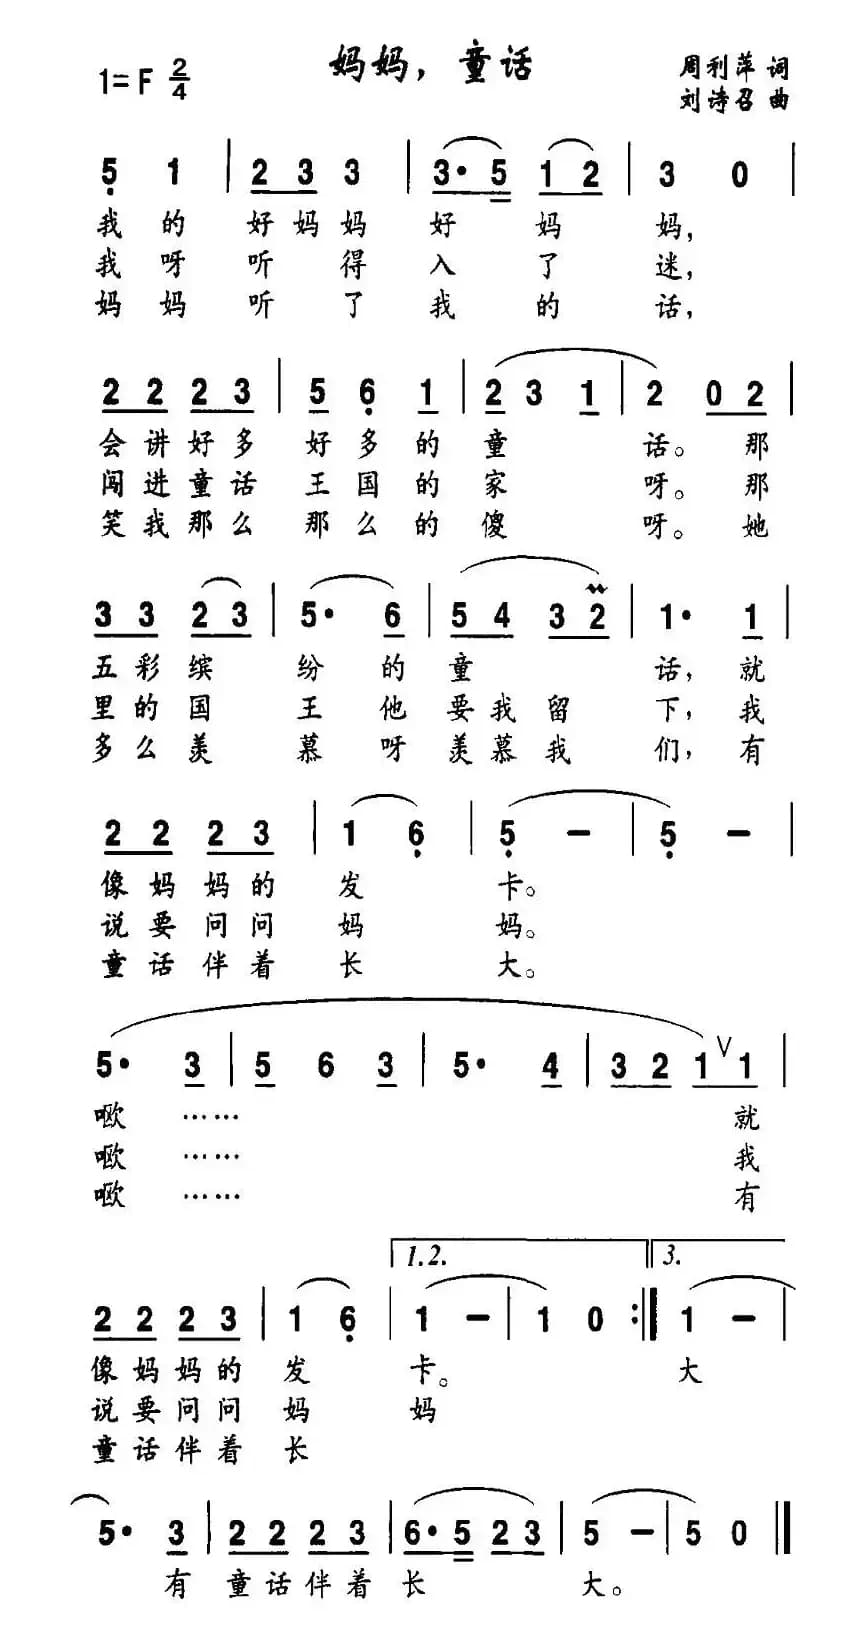 妈妈，童话
1=F 2/4
周利萍 词
刘诗召 曲
5 1 | 2 3 3 | 3· 5 1 2 | 3 0 |
我的 好妈妈 好 妈 妈，
我呀 听 得 入 了 迷，
妈妈 听 了 我 的 话，
2 2 2 3 | 5 6 1 | 2 3 1 | 2 0 2 |
会讲好多 好多的 童 话。那
闯进童话 王国的 家 呀。那
笑我那么 那么的 傻 呀。她
3 3 2 3 | 5· 6 | 5 4 3 2 | 1· 1 |
五彩缤 纷 的 童 话，就
里的国 王 他 要我留 下，我
多么羡 慕 呀 羡慕我 们，有
2 2 2 3 | 1 6 | 5 – | 5 – |
像妈妈的 发 卡。
说要问问 妈 妈。
童话伴着 长 大。
5· 3 | 5 6 3 | 5· 4 | 3 2 1 V 1 |
噷 …… 就
噷 …… 我
噷 …… 有
1.2. 3.
2 2 2 3 | 1 6 | 1 – | 1 0 :‖ 1 – |
像妈妈的 发 卡。 大
说要问问 妈 妈
童话伴着 长
5· 3 | 2 2 2 3 | 6· 5 2 3 | 5 – | 5 0 ‖
有 童话伴着 长 大。